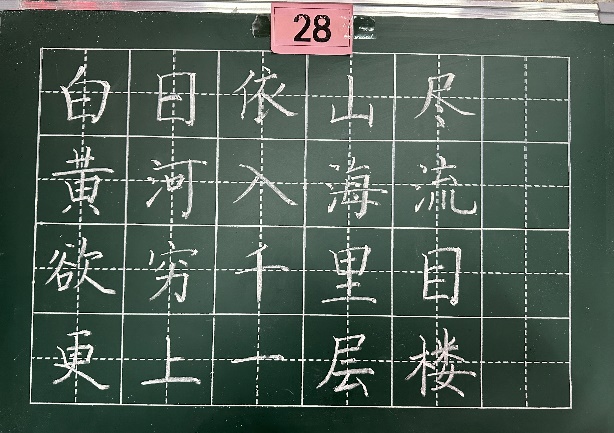 28
白日依山尽
黄河入海流
欲穷千里目
更上一层楼